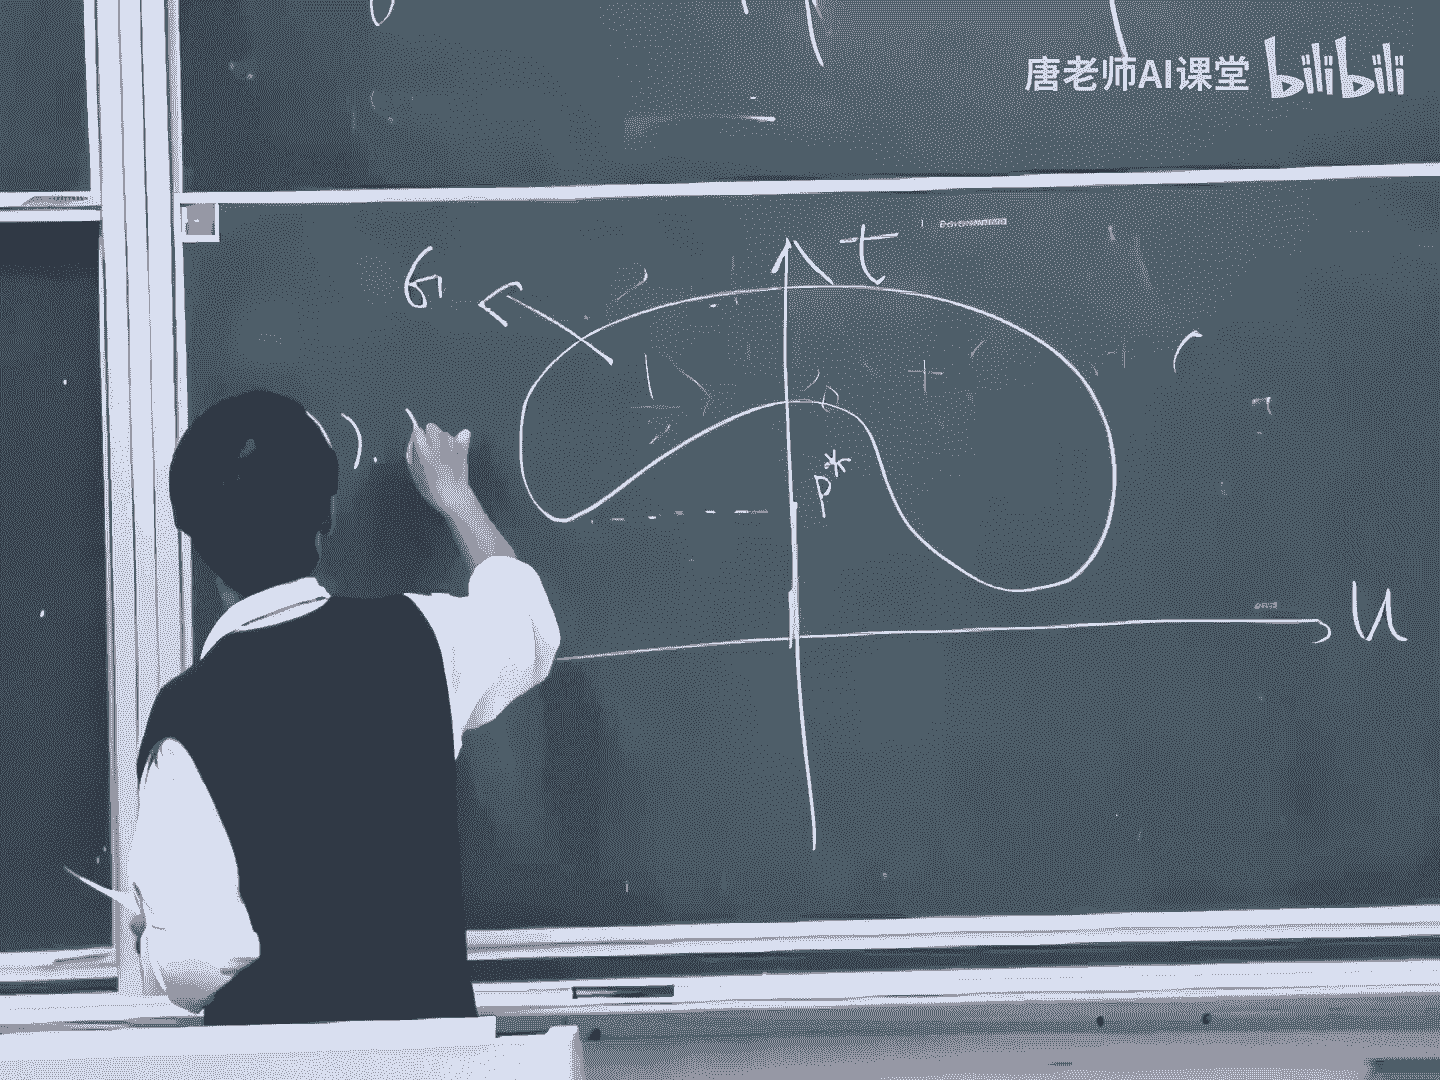 唐老师AI课堂 bilibili
t
G
P*
u